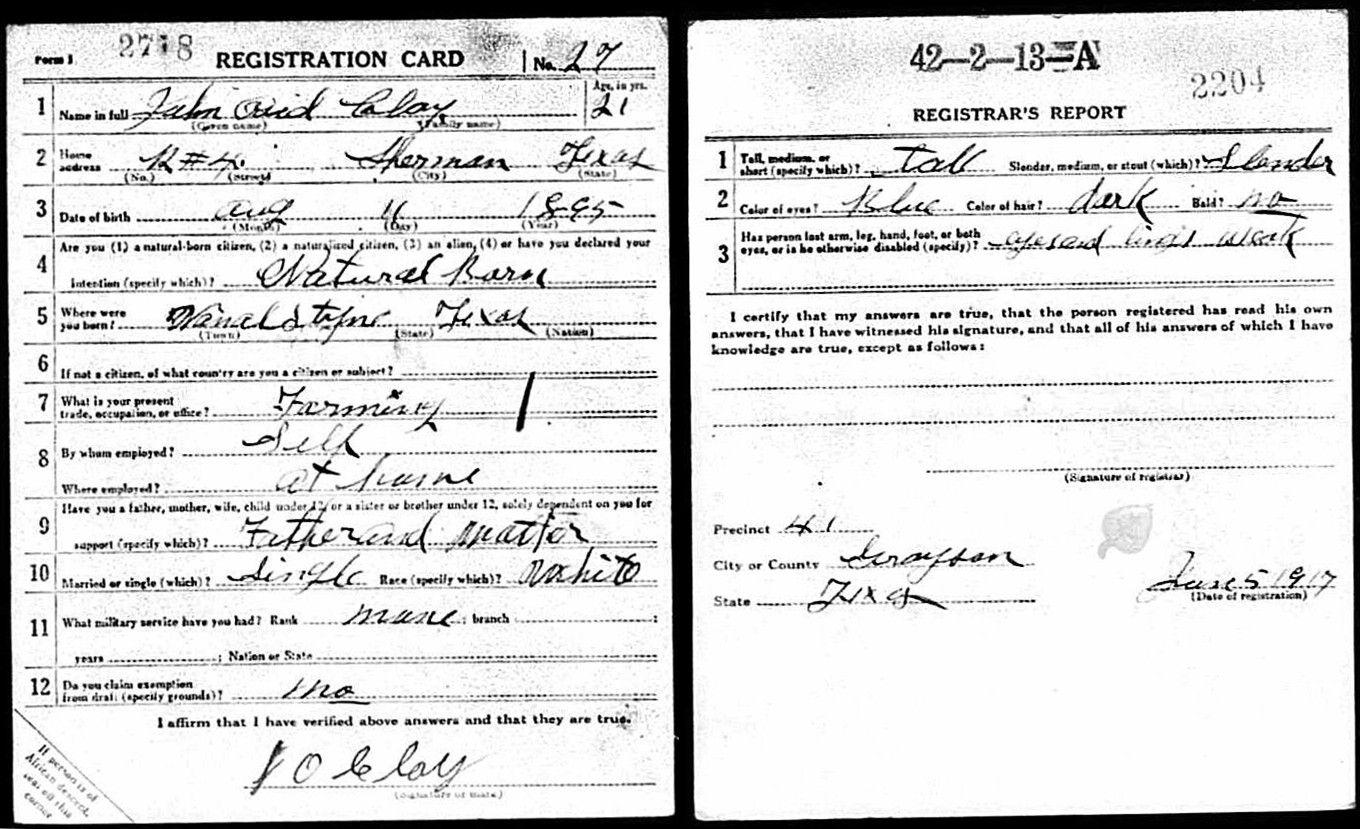 Form 1 2718 REGISTRATION CARD No. 27
1 Name in full John Ovid Clay Age, in yrs. 21
(Given name) (Family name)
2 Home address R#4. Sherman Texas
(No.) (Street) (City) (State)
3 Date of birth Aug 11 1895
(Month) (Day) (Year)
4 Are you (1) a natural-born citizen, (2) a naturalized citizen, (3) an alien, (4) or have you declared your
intention (specify which)? Natural Born
5 Where were you born? Vanalstyne Texas
(Town) (State) (Nation)
6 If not a citizen, of what country are you a citizen or subject?
7 What is your present trade, occupation, or office? Farming
8 By whom employed? Self
Where employed? at home
9 Have you a father, mother, wife, child under 12, or a sister or brother under 12, solely dependent on you for
support (specify which)? Father and Mother
10 Married or single (which)? Single Race (specify which)? White
11 What military service have you had? Rank none ; branch ;
years ; Nation or State
12 Do you claim exemption from draft (specify grounds)? no
I affirm that I have verified above answers and that they are true.
J O Clay
(Signature or mark)
If person is of
African descent,
tear off this
corner
42-2-13-A
2204
REGISTRAR'S REPORT
1 Tall, medium, or short (specify which)? tall Slender, medium, or stout (which)? Slender
2 Color of eyes? Blue Color of hair? dark Bald? no
3 Has person lost arm, leg, hand, foot, or both
eyes, or is he otherwise disabled (specify)? weak
I certify that my answers are true, that the person registered has read his own
answers, that I have witnessed his signature, and that all of his answers of which I have
knowledge are true, except as follows:
(Signature of registrar)
Precinct 41
City or County Grayson
State Texas
June 5 1917
(Date of registration)